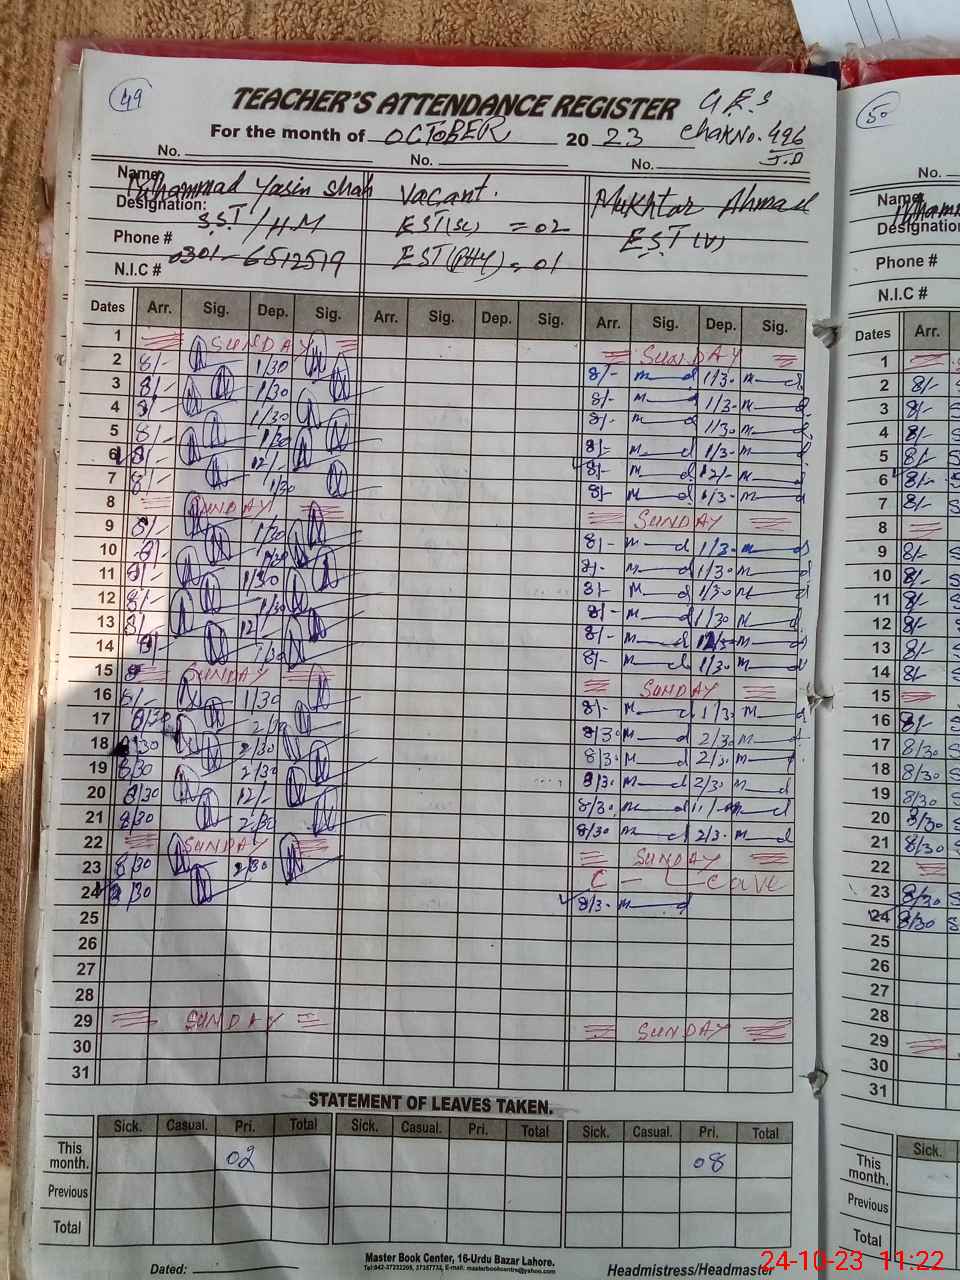 49
TEACHER'S ATTENDANCE REGISTER
G.E.S
For the month of OCTOBER 2023
Chak No. 496
J.B
50
No. No. No. No.
Name: Muhammad Yasin Shah Vacant. Mukhtar Ahmad
Designation: S.S.T / H.M EST(SC) = 02 E.S.T (V)
Phone # 0301-6512519 EST(PHY) = 01
N.I.C #
Name
Designation
Phone #
N.I.C #
Dates Arr. Sig. Dep. Sig. Arr. Sig. Dep. Sig. Arr. Sig. Dep. Sig. Dates Arr.
1 SUNDAY SUNDAY 1
2 8/- 1/30 8/- m d 1/30 m d 2 8/-
3 8/- 1/30 8/- m d 1/30 m d 3 8/-
4 8/- 1/30 8/- m d 1/30 m d 4 8/-
5 8/- 1/30 8/- m d 1/30 m d 5 8/-
6 8/- 12/- 8/- m d 12/- m d 6 8/-
7 8/- 1/30 8/- m d 1/30 m d 7 8/-
8 SUNDAY SUNDAY 8
9 8/- 1/30 8/- m d 1/30 m d 9 8/-
10 8/- 1/30 8/- m d 1/30 m d 10 8/-
11 8/- 1/30 8/- m d 1/30 m d 11 8/-
12 8/- 1/30 8/- m d 1/30 m d 12 8/-
13 8/- 12/- 8/- m d m d 13 8/-
14 8/- 1/30 8/- m d 1/30 m d 14 8/-
15 SUNDAY SUNDAY 15
16 8/- 1/30 8/- m d 1/30 m d 16 8/-
17 8/30 2/30 8/30 m d 2/30 m d 17 8/30
18 8/30 2/30 8/30 m d 2/30 m d 18 8/30
19 8/30 2/30 8/30 m d 2/30 m d 19 8/30
20 8/30 12/- 8/30 m d m d 20 8/30
21 8/30 2/30 8/30 m d 2/30 m d 21 8/30
22 SUNDAY SUNDAY 22
23 8/30 2/30 C - Leave 23 8/30
24 8/30 8/30 m d 24 8/30
25 25
26 26
27 27
28 28
29 SUNDAY SUNDAY 29
30 30
31 31
STATEMENT OF LEAVES TAKEN.
Sick. Casual. Pri. Total Sick. Casual. Pri. Total Sick. Casual. Pri. Total Sick.
This month. 02 08 This month.
Previous Previous
Total Total
Master Book Center, 16-Urdu Bazar Lahore.
Dated: Headmistress/Headmaster
24-10-23 11:22